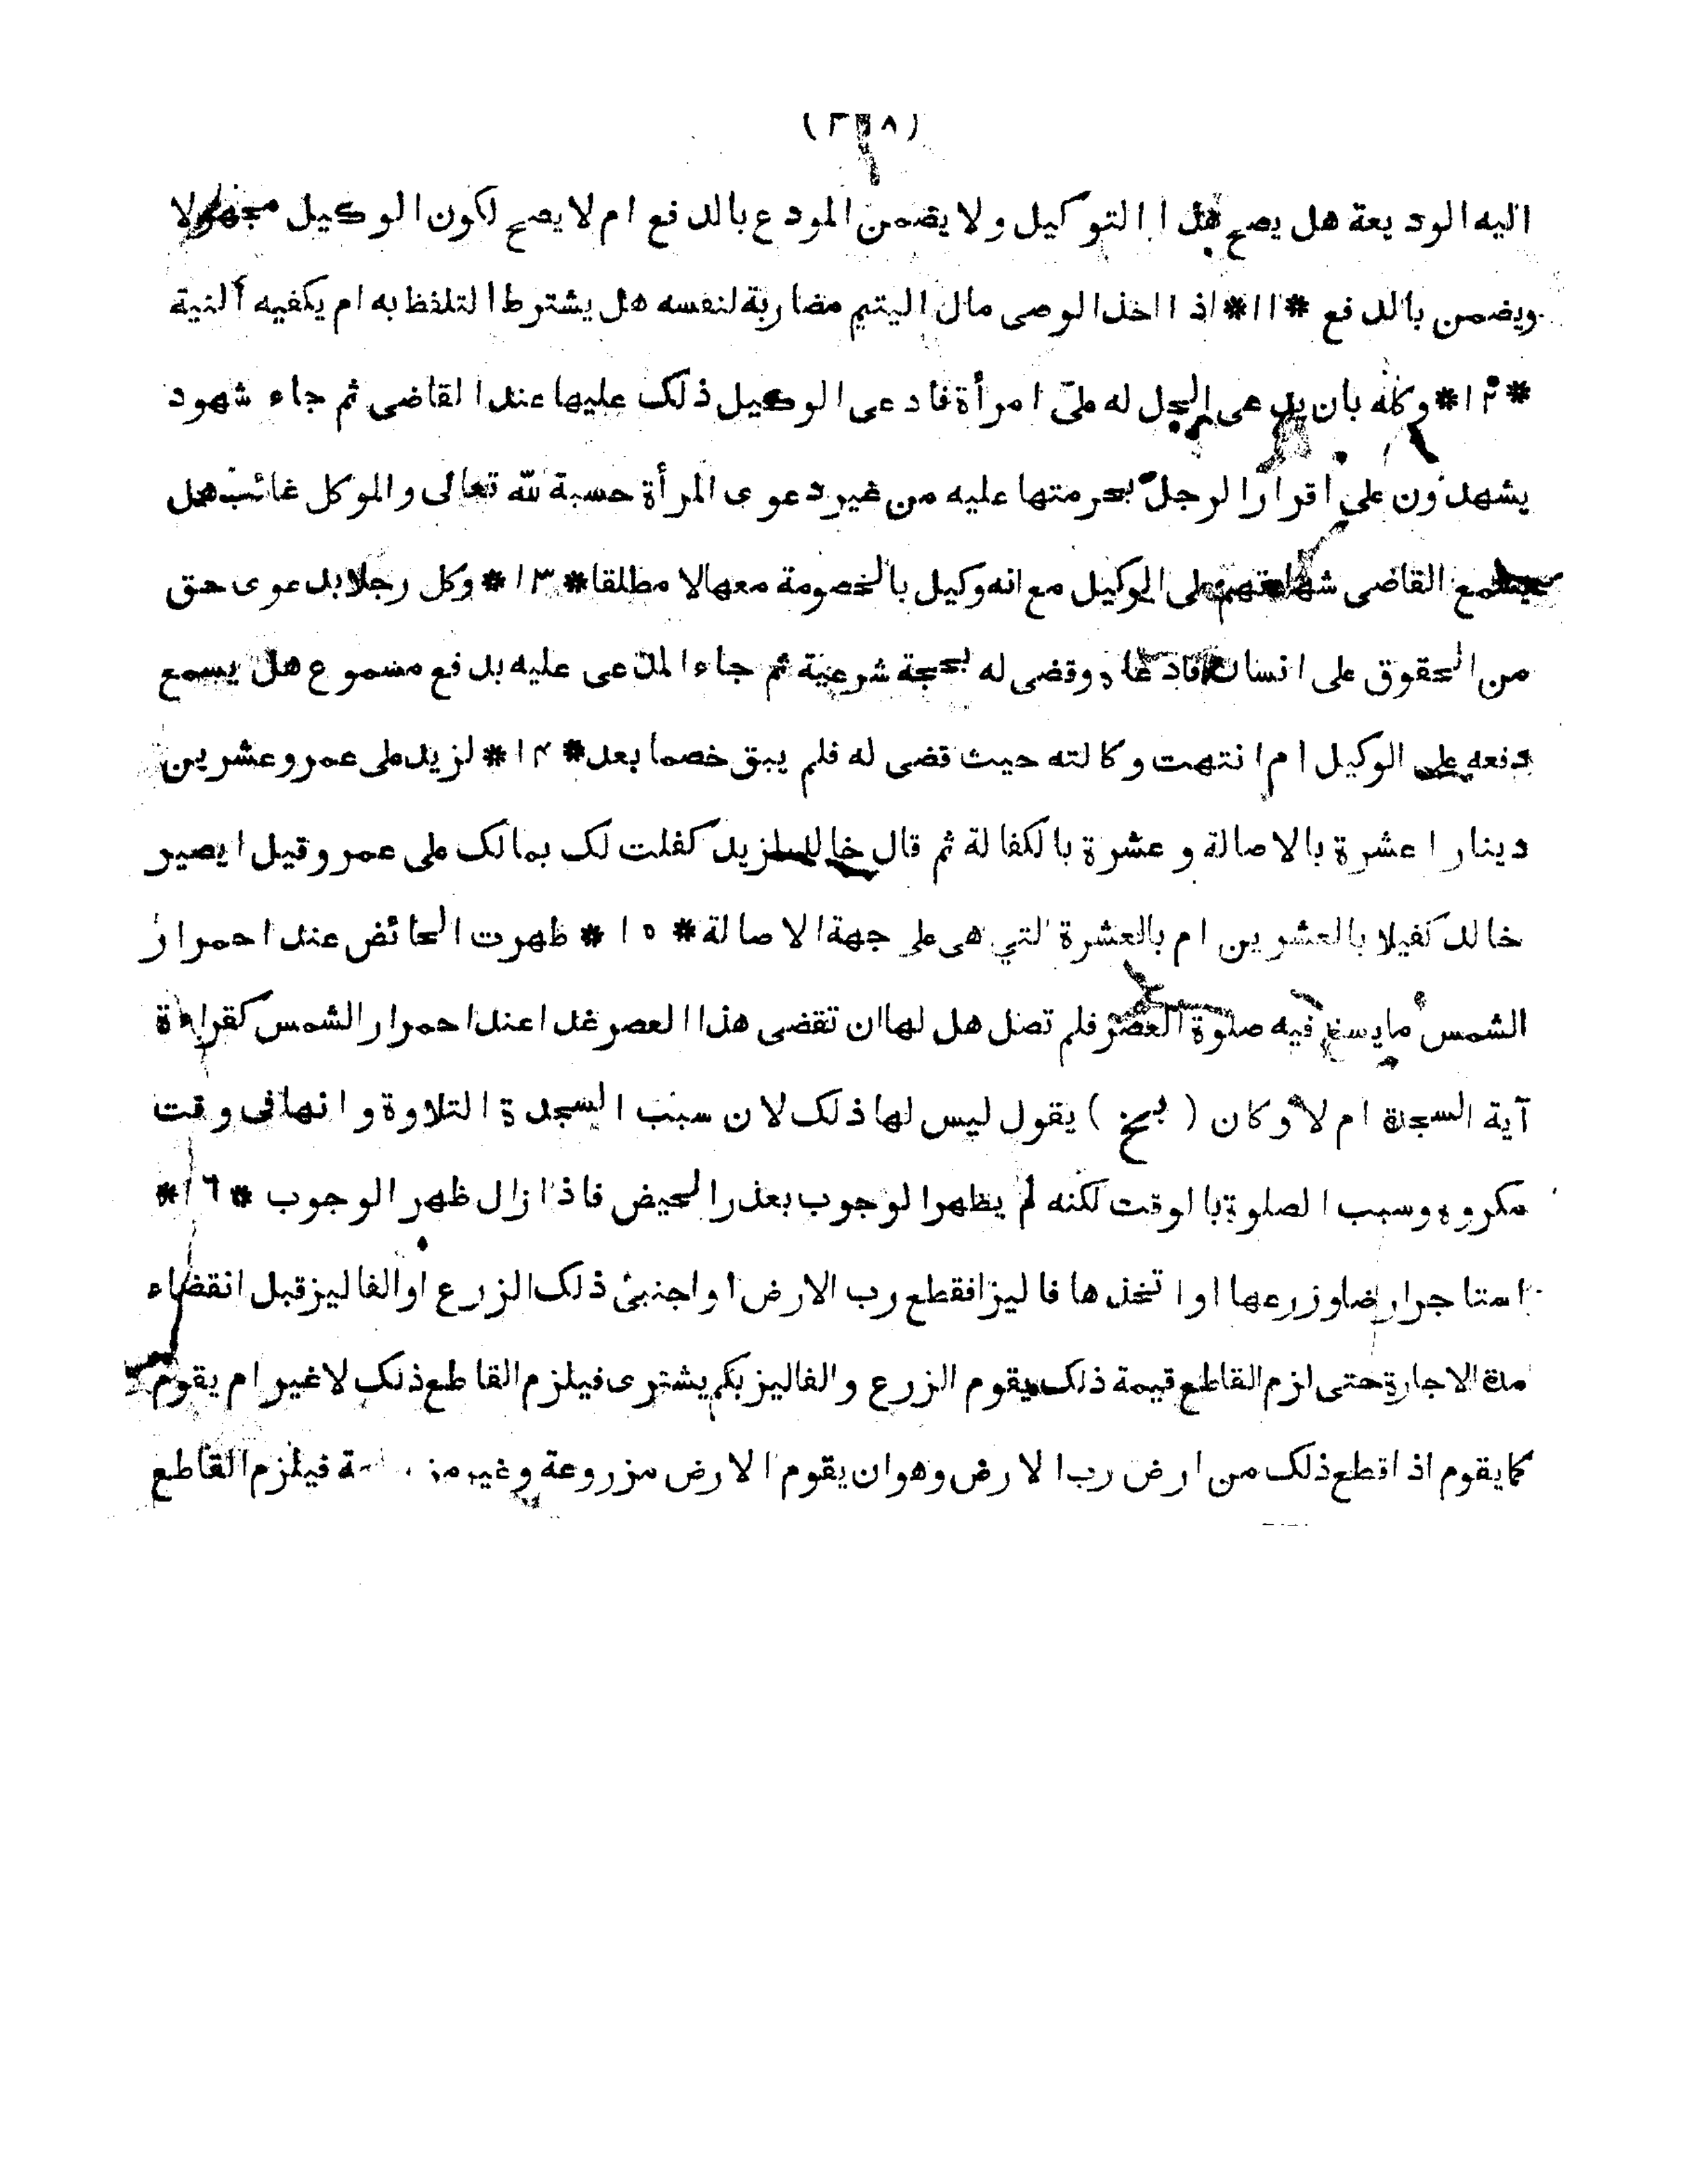 اليه الوديعة هل يصح هذا التوكيل ولا يضمن المودع بالدفع ام لا يصح لكون الوكيل مجهولا
ويضمن بالدفع * ١١ * اذا اخذ الوصى مال اليتيم مضاربة لنفسه هل يشترط التلفظ به ام يكفيه النية
* ١٢ * وكله بان يدعى لرجل له على امرأة فادعى الوكيل ذلك عليها عند القاضى ثم جاء شهود
يشهدون على اقرار الرجل بحرمتها عليه من غير دعوى المرأة حسبة لله تعالى والموكل غائب هل
يسمع القاضى شهادتهم على الوكيل مع انه وكيل بالخصومة معها لا مطلقا * ١٣ * وكل رجلا بدعوى حق
من الحقوق على انسان فادعاه وقضى له بحجة شرعية ثم جاء المدعى عليه بدفع مسموع هل يسمع
دفعه على الوكيل ام انتهت وكالته حيث قضى له فلم يبق خصما بعد * ١۴ * لزيد على عمرو عشرين
دينارا عشرة بالاصالة وعشرة بالكفالة ثم قال خالد لزيد كفلت لك بمالك على عمرو قيل ايصير
خالد كفيلا بالعشرين ام بالعشرة التي هى على جهة الاصالة * ١٥ * ظهرت الحائض عند احمرار
الشمس ما يسع فيه صلوة العصر فلم تصل هل لها ان تقضى هذا العصر غدا عند احمرار الشمس كقراءة
آية السجدة ام لا وكان ( بخ ) يقول ليس لها ذلك لان سبب السجدة التلاوة وانها فى وقت
مكروه وسبب الصلوة بالوقت لكنه لم يظهر الوجوب بعذر الحيض فاذا زال ظهر الوجوب * ١٦ *
استاجر ارضا وزرعها او اتخذها فاليزا فقطع رب الارض او اجنبئ ذلك الزرع او الفاليز قبل انقضاء
مدة الاجارة حتى لزم القاطع قيمة ذلك يقوم الزرع والفاليز بكم يشترى فيلزم القاطع ذلك لا غير ام يقوم
كما يقوم اذا قطع ذلك من ارض رب الارض وهو ان يقوم الارض مزروعة وغير فيلزم القاطع